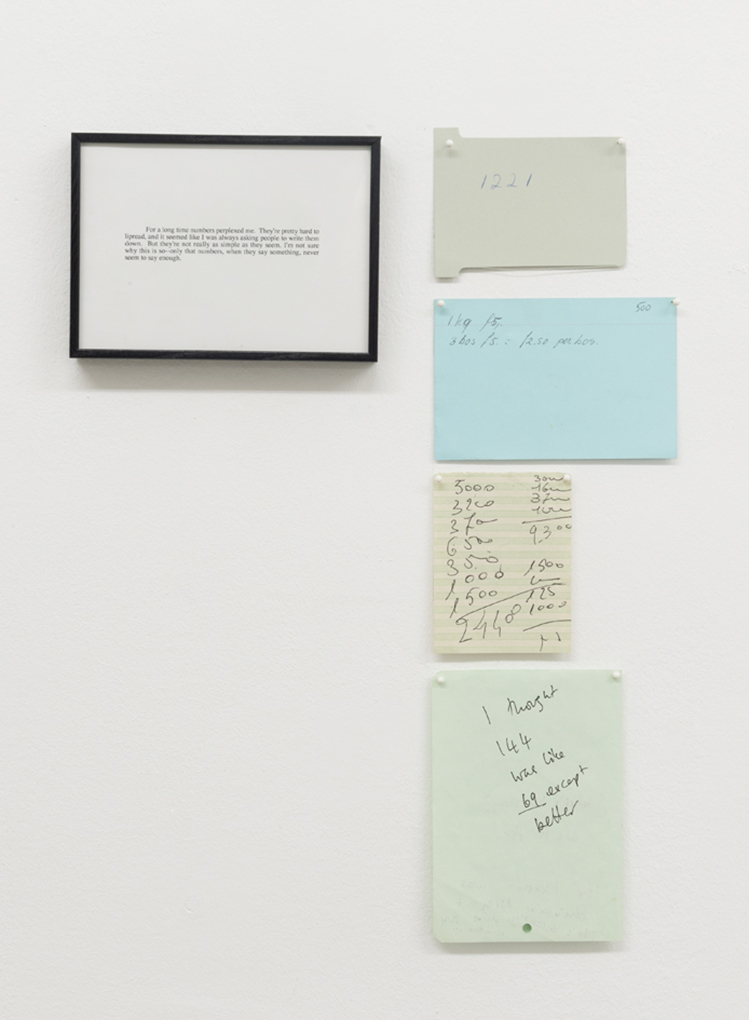 For a long time numbers perplexed me. They're pretty hard to
lipread, and it seemed like I was always asking people to write them
down. But they're not really as simple as they seem. I'm not sure
why this is so--only that numbers, when they say something, never
seem to say enough.
1221
500
1 kg f5,-
3 kos f5. = f2.50 per kos.
5000
3200
3700
6500
3500
1000
1500
2448
9300
1500
125
1000
I thought
144
was like
69 except
better